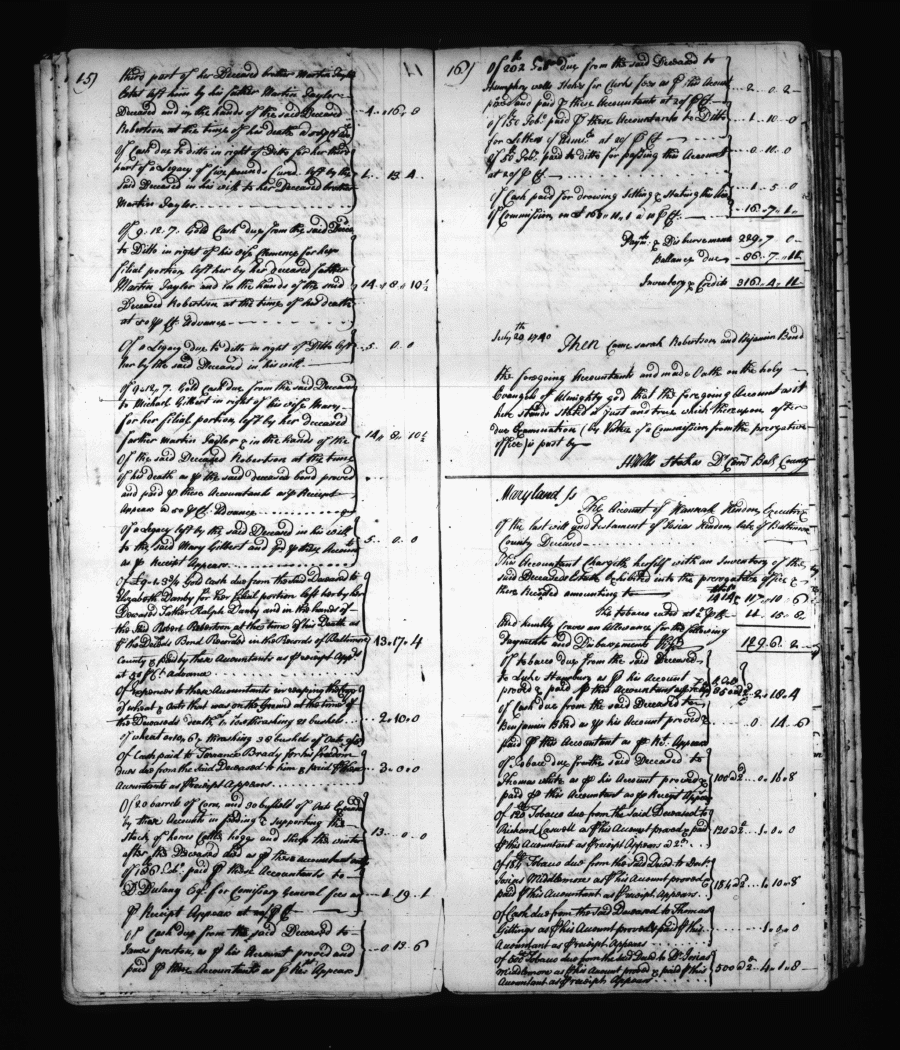 15)
third part of her Deceased brother Martin Taylor
left him by his father Martin Taylor
Deceased and in the hands of the said Deceased
Robertson at the time of his death 4 .. 16 .. 8
Of Cash due to ditto in right of Ditto for her third
part of a Legacy of five pounds left by the
said Deceased in his will to her Deceased brother 1 .. 13 .. 4
Martin Taylor
Of 9. 12. 7. Gold Cash due from the said Deced
to Ditto in right of his wife for her
filial portion left her by her deceased father
Martin Taylor and in the hands of the said 14 .. 8 .. 10½
Deceased Robertson at the time of his death
at 50 P Ct Advance
Of a Legacy due to ditto in right of Ditto left 5 .. 0 .. 0
her by the said Deceased in his will
Of 9. 12. 7. Gold Cash due from the said Deceased
to Michael Gilbert in right of his wife Mary
for her filial portion left by her deceased
father Martin Taylor & in the hands of the 14 .. 8 .. 10½
Of the said Deceased Robertson at the time
of his death as P the said deceaseds bond proved
and paid P these Accountants as P Receipt
Appears a 50 P Ct. Advance
Of a Legacy left by the said Deceased in his will
to the said Mary Gilbert and pd P these Account 5 .. 0 .. 0
as P Receipt Appears
Of £9 .. 3¾ Gold Cash due from the said Deceased to
Elizabeth Danby for her filial portion left her by her
Deceased Father Ralph Danby and in the hands of
the said Robert Robertson at the time of his Death as
P the Deceds Bond Recorded in the Records of Baltimore 13 .. 17 .. 4
County & paid by these Accountants as P receipt Appd
at 50 P Ct advance
Of expences to these Accountants in reaping the Crop
of wheat & Oats that was on the Ground at the time of
the Deceaseds death thrashing 21 bushels 2 .. 10 .. 0
of wheat thrashing 38 bushels of Oats
Of Cash paid to Terrence Brady for his freedom
dues due from the said Deceased to him & paid P these 3 .. 0 .. 0
Accountants as P receipt Appears
Of 20 barrels of Corn, and 30 bushells of Oats Expended
by these Accounts in feeding & supporting the
stock of horses Cattle hoggs and sheep the winter 13 .. 0 .. 0
after the Deceased died as P these accountants oath
Of Tob. paid P these Accountants to
D Dulany Esqr. for Comissary General fees as 1 .. 19 .. 1
P Receipt Appears at P Ct
Of Cash due from the said Deceased to
James preston, as P his Account proved and 0 .. 13 .. 6
paid P these Accountants as P Rect Appear
16)
Of 202 Tob due from the said Deceased to
Humphry wells Stokes for Clerks fees as P his Account 2 .. 0 .. 2
proved and paid P these Accountants at P Ct
Of 150 Tobo. paid P these Accountants to Ditto 1 .. 10 .. 0
for Letters at P Ct
Of 50 Tobo. paid to ditto for passing this Account 0 .. 10 .. 0
at P Ct
Of Cash paid for drawing Setting & Stating this Acct 1 .. 5 .. 0
Of Commission on £ 168 .. 11 .. 1 a 10 P Ct. 16 .. 7 .. 1
Paymts & Disbursements 229 .. 7 .. 0
Ballance due 86 .. 7 .. 11
Inventory & Credits 316 .. 4 .. 11
July 29th 1740
Then Came Sarah Robertson and Benjamin Bond
the foregoing Accountants and made Oath on the holy
Evangels of Almighty god that the foregoing Account as it
here stands Stated is just and true which thereupon after
due Examination (by Virtue of a Commission from the prerogative
office) is past by
HWells Stokes D Comy Balt County
Maryland ss
The Account of Hannah Hendon Executrix
of the last will and testament of Josias Hendon late of Baltimore
County Deceased
This Accountant Chargeth herself with an Inventory of the
said Deceaseds Estate Exhibited into the prerogative office &
there Accepted amounting to 1414 & 117 .. 10 .. 6
the tobacco rated at P Ct 11 .. 15 .. 8
And humbly Craves an Allowance for the following
Payments and Disbursements Vizt 129 .. 6 .. 2
Of tobacco due from the said Deceased
to Luke Stansbury as P his Account
proved & paid P this Accountant 2 .. 18 .. 4
Of Cash due from the said Deceased to
Benjamin Bond as P his Account proved & 0 .. 14 .. 6
paid P this Accountant as P Rt. Appears
Of Tobacco due from the said Deceased to
Thomas White as P his Account proved & 100 do .. 0 .. 16 .. 8
paid P this Accountant as P Receipt Appears
Of 120 Tobacco due from the said Deceased to
Richard Caswell as P his Account proved & paid 120 do .. 1 .. 0 .. 0
P this Accountant as P receipt Appears
Of 184 Tobacco due from the said Deced to Doctr
Josias Middlemore as P his Account proved & 184 do .. 1 .. 10 .. 8
paid P this Accountant as P receipt Appears
Of Cash due from the said Deceased to Thomas
Gittings as P his Account proved & paid P this 1 .. 0 .. 0
Accountant as P receipt Appears
Of 500 Tobacco due from the said Deced to Dr Josias
Middlemore as P his Account proved & paid P this 500 do .. 4 .. 1 .. 8
Accountant as P receipt Appears